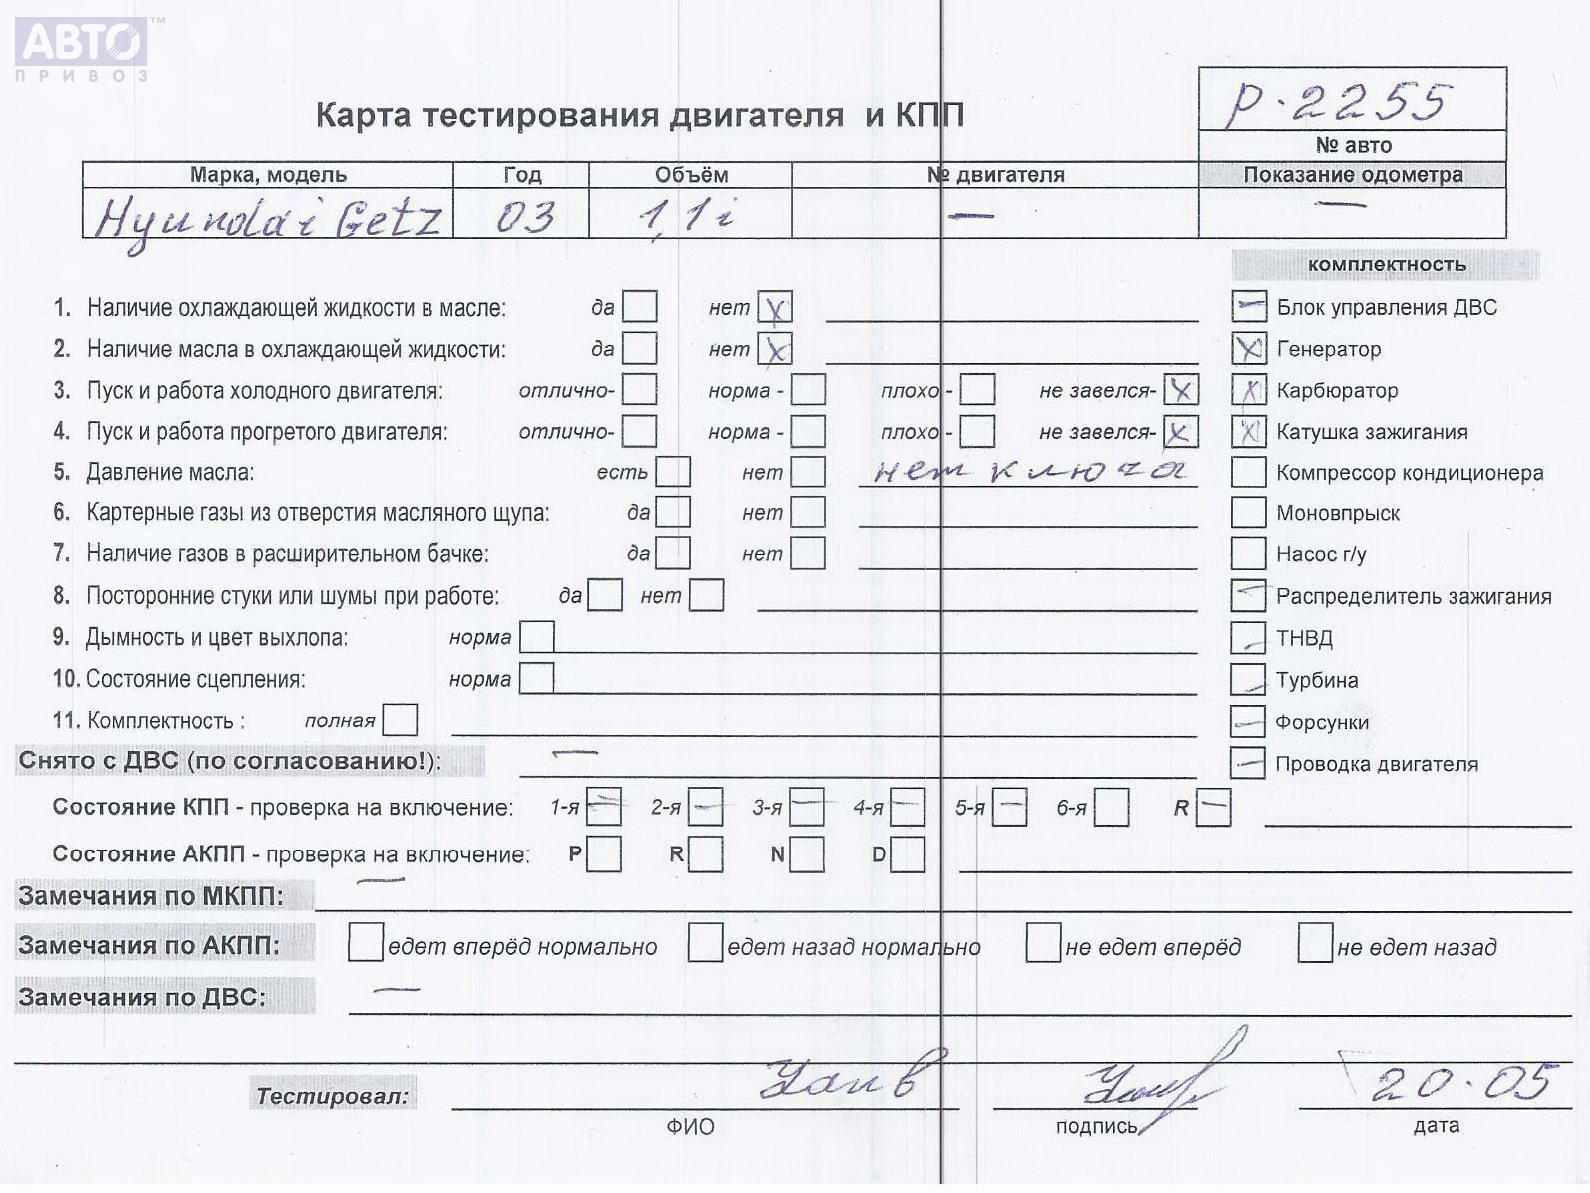 АВТО ™
ПРИВОЗ
Р-2255
Карта тестирования двигателя и КПП
№ авто
Марка, модель Год Объём № двигателя Показание одометра
Hyundai Getz 03 1,1i — —
комплектность
1. Наличие охлаждающей жидкости в масле: да нет X Блок управления ДВС
2. Наличие масла в охлаждающей жидкости: да нет X Генератор X
3. Пуск и работа холодного двигателя: отлично- норма - плохо - не завелся- X Карбюратор X
4. Пуск и работа прогретого двигателя: отлично- норма - плохо - не завелся- X Катушка зажигания X
5. Давление масла: есть нет нет ключа Компрессор кондиционера
6. Картерные газы из отверстия масляного щупа: да нет Моновпрыск
7. Наличие газов в расширительном бачке: да нет Насос г/у
8. Посторонние стуки или шумы при работе: да нет Распределитель зажигания
9. Дымность и цвет выхлопа: норма ТНВД
10. Состояние сцепления: норма Турбина
11. Комплектность : полная Форсунки
Снято с ДВС (по согласованию!): — Проводка двигателя
Состояние КПП - проверка на включение: 1-я 2-я 3-я 4-я 5-я 6-я R
Состояние АКПП - проверка на включение: P R N D
Замечания по МКПП: —
Замечания по АКПП: едет вперёд нормально едет назад нормально не едет вперёд не едет назад
Замечания по ДВС: —
Тестировал: 20.05
ФИО подпись дата